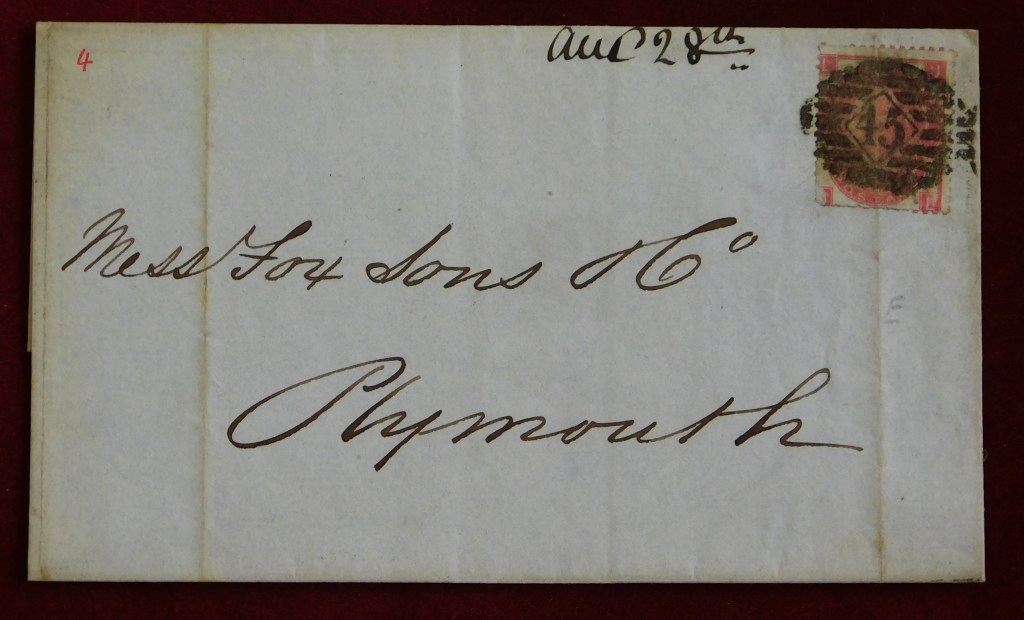 4
Aug 28th
45
Messrs Fox Sons & Co
Plymouth
E